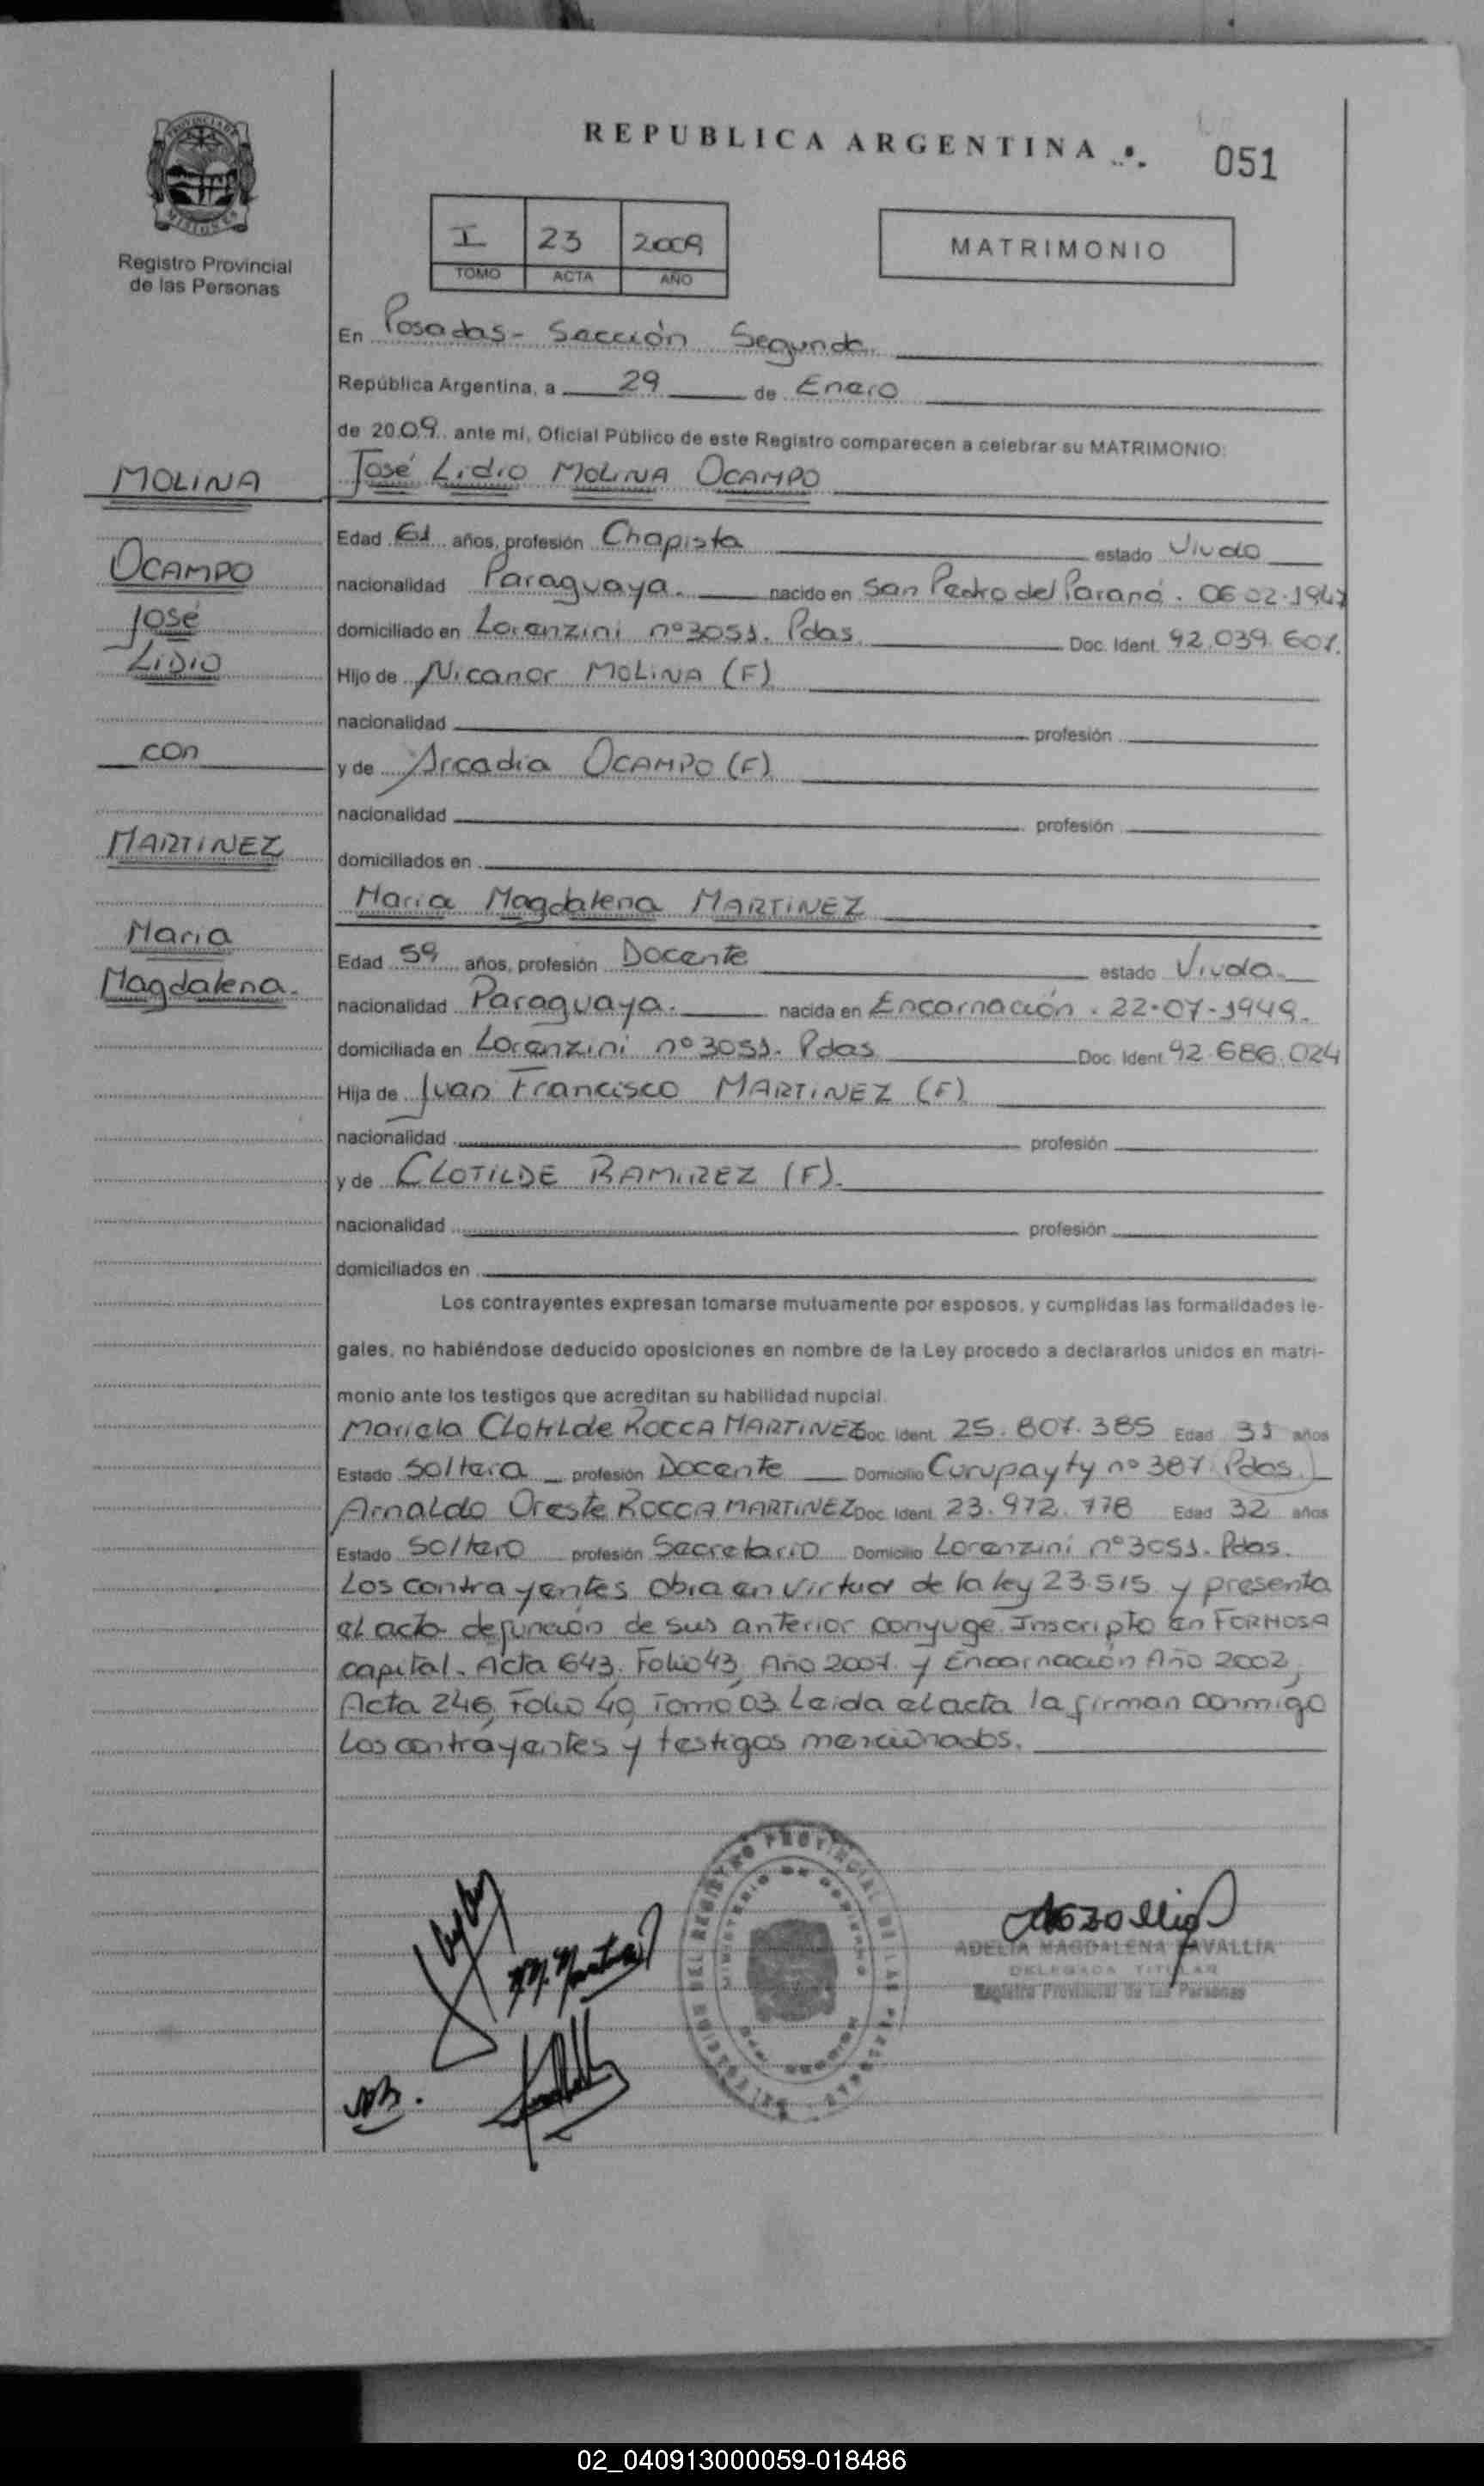 REPUBLICA ARGENTINA
051
PROVINCIA DE
MISIONES
Registro Provincial
de las Personas
I 23 2009
TOMO ACTA AÑO
MATRIMONIO
En Posadas - Sección Segunda
República Argentina, a 29 de Enero
de 2009 ante mí, Oficial Público de este Registro comparecen a celebrar su MATRIMONIO:
MOLINA
OCAMPO
José
LiDiO
con
MARTINEZ
Maria
Magdalena.
José Lidio MOLINA OCAMPO
Edad 61 años, profesión Chapista estado Viudo
nacionalidad Paraguaya. nacido en San Pedro del Paraná. 06.02.1947
domiciliado en Lorenzini nº 3051. Pdas Doc. Ident. 92.039.607.
Hijo de Nicanor MOLINA (F)
nacionalidad profesión
y de Arcadia OCAMPO (F)
nacionalidad profesión
domiciliados en
Maria Magdalena MARTINEZ
Edad 59 años, profesión Docente estado Viuda
nacionalidad Paraguaya. nacida en Encarnación. 22-07-1949.
domiciliada en Lorenzini nº 3051. Pdas Doc. Ident 92.686.024
Hija de Juan Francisco MARTINEZ (F)
nacionalidad profesión
y de CLOTILDE RAMIREZ (F).
nacionalidad profesión
domiciliados en
Los contrayentes expresan tomarse mutuamente por esposos, y cumplidas las formalidades le-
gales, no habiéndose deducido oposiciones en nombre de la Ley procedo a declararlos unidos en matri-
monio ante los testigos que acreditan su habilidad nupcial.
Mariela Clotilde ROCCA MARTINEZ Doc. Ident. 25.807.385 Edad 31 años
Estado Soltera profesión Docente Domicilio Curupayty nº 387 Pdas.
Arnaldo Oreste ROCCA MARTINEZ Doc. Ident. 23.972.778 Edad 32 años
Estado Soltero profesión Secretario Domicilio Lorenzini nº 3051. Pdas.
Los contrayentes obra en virtud de la ley 23.515 y presenta
el acta defunción de sus anterior conyuge. Inscripto en FORMOSA
capital. Acta 643, Folio 43, Año 2007. y Encarnación Año 2002,
Acta 246, Folio 49, Tomo 03. Leida el acta la firman conmigo
Los contrayentes y testigos mencionados.
M. Martinez
ADELIA MAGDALENA RAVALLIA
DELEGADA TITULAR
Registro Provincial de las Personas
02_040913000059-018486